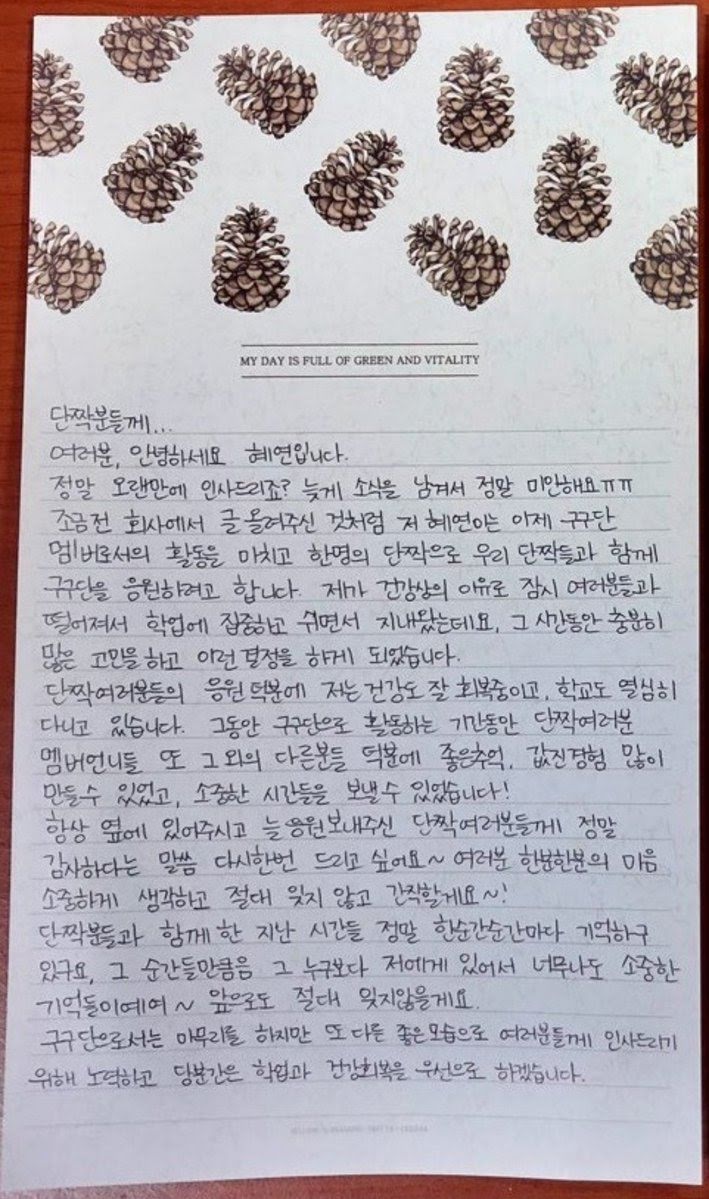 MY DAY IS FULL OF GREEN AND VITALITY
단짝분들께...
여러분, 안녕하세요 혜연입니다.
정말 오랜만에 인사드리죠? 늦게 소식을 남겨서 정말 미안해요ㅠㅠ
조금전 회사에서 글올려주신 것처럼 저 혜연이는 이제 구구단
멤버로서의 활동을 마치고 한명의 단짝으로 우리 단짝들과 함께
구구단을 응원하려고 합니다. 제가 건강상의 이유로 잠시 여러분들과
떨어져서 학업에 집중하고 쉬면서 지내왔는데요, 그 시간동안 충분히
많은 고민을하고 이런 결정을 하게 되었습니다.
단짝여러분들의 응원덕분에 저는 건강도 잘 회복중이고, 학교도 열심히
다니고 있습니다. 그동안 구구단으로 활동하는 기간동안 단짝여러분
멤버언니들 또 그외의 다른분들 덕분에 좋은추억, 값진경험 많이
만들수 있었고, 소중한 시간들을 보낼수 있었습니다!
항상 옆에 있어주시고 늘응원보내주신 단짝여러분들께 정말
감사하다는 말씀 다시한번 드리고 싶어요~ 여러분 한분한분의 마음
소중하게 생각하고 절대 잊지 않고 간직할게요~!
단짝분들과 함께한 지난 시간들 정말 한순간순간마다 기억하구
있구요, 그 순간들만큼음 그 누구보다 저에게 있어서 너무나도 소중한
기억들이예여~ 앞으로도 절대 잊지않을게요.
구구단으로서는 마무리를 하지만 또다른 좋은모습으로 여러분들께 인사드리기
위해 노력하고 당분간은 학업과 건강회복을 우선으로 하겠습니다.